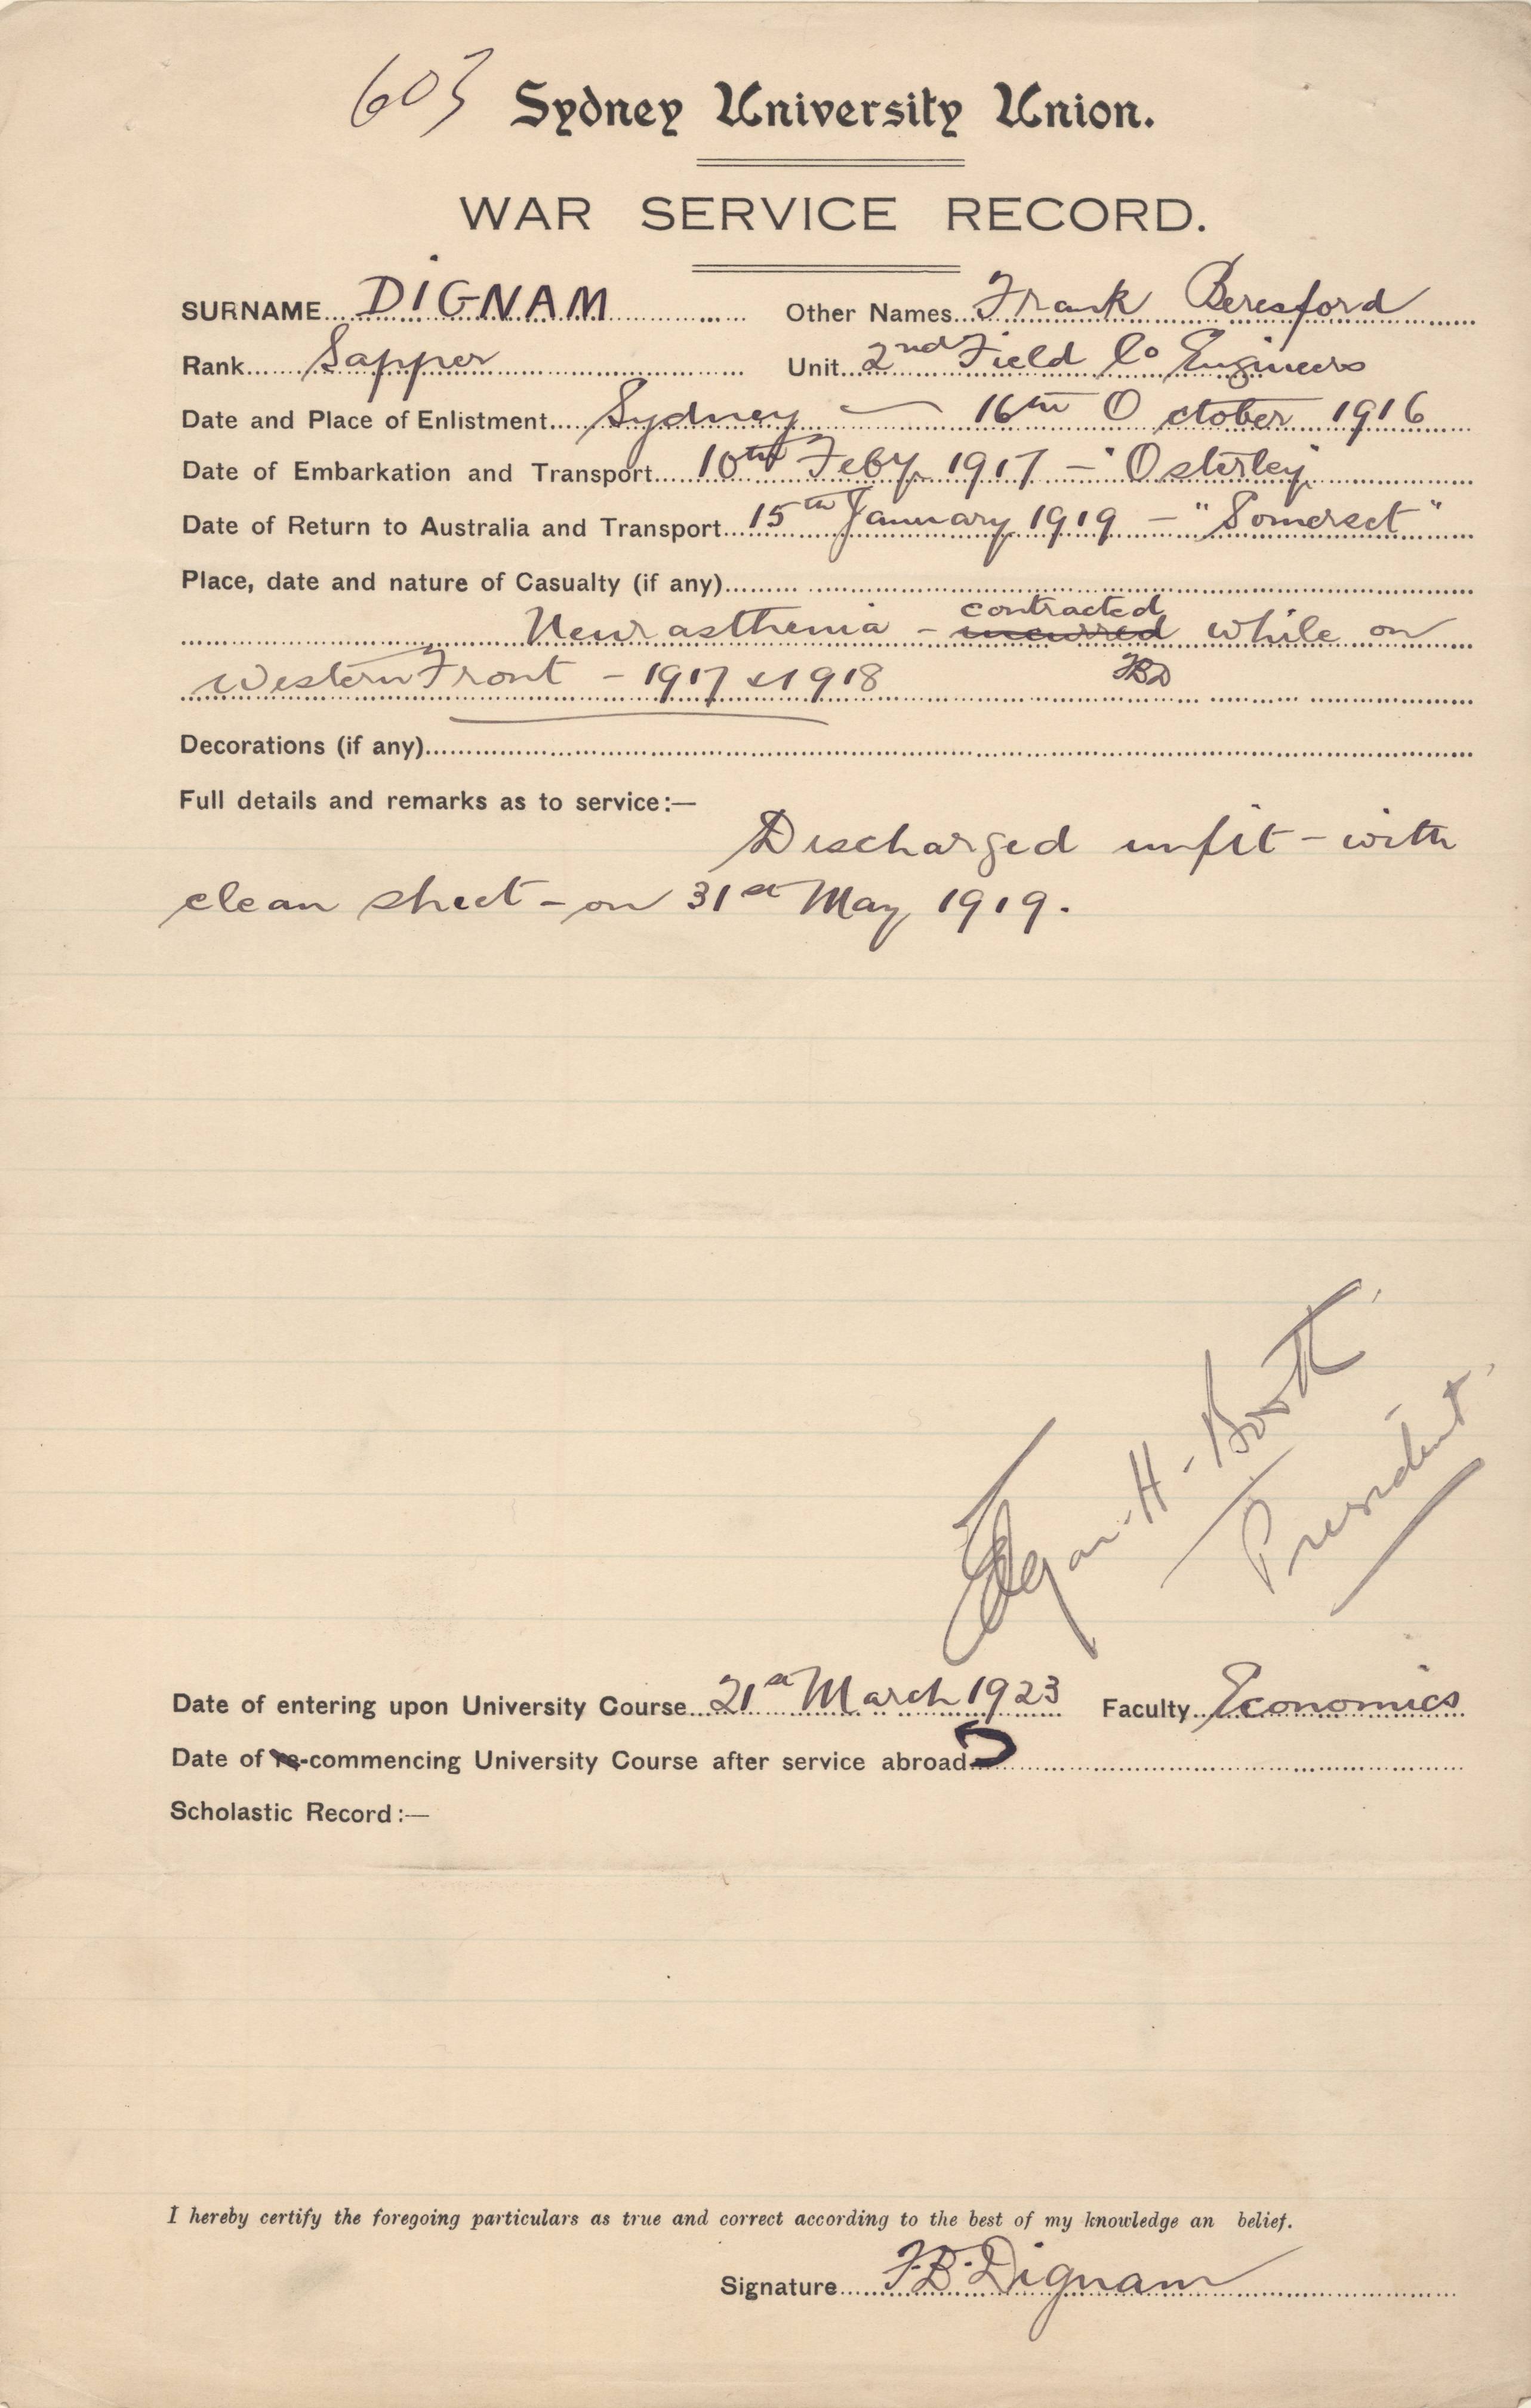 603 Sydney University Union.
WAR SERVICE RECORD.
SURNAME DIGNAM Other Names Frank Beresford
Rank Sapper Unit 2nd Field Co Engineers
Date and Place of Enlistment Sydney — 16th October 1916
Date of Embarkation and Transport 10th Feby. 1917 — "Osterley
Date of Return to Australia and Transport 15th January 1919 — "Somerset"
Place, date and nature of Casualty (if any)
contracted
Neurasthenia - incurred while on
Western Front - 1917 & 1918 FBD
Decorations (if any)
Full details and remarks as to service:—
Discharged unfit - with
clean sheet - on 31st May 1919.
Edgar H. Booth
President
Date of entering upon University Course 21st March 1923 Faculty Economics
Date of re-commencing University Course after service abroad
Scholastic Record:—
I hereby certify the foregoing particulars as true and correct according to the best of my knowledge an belief.
Signature F.B. Dignam